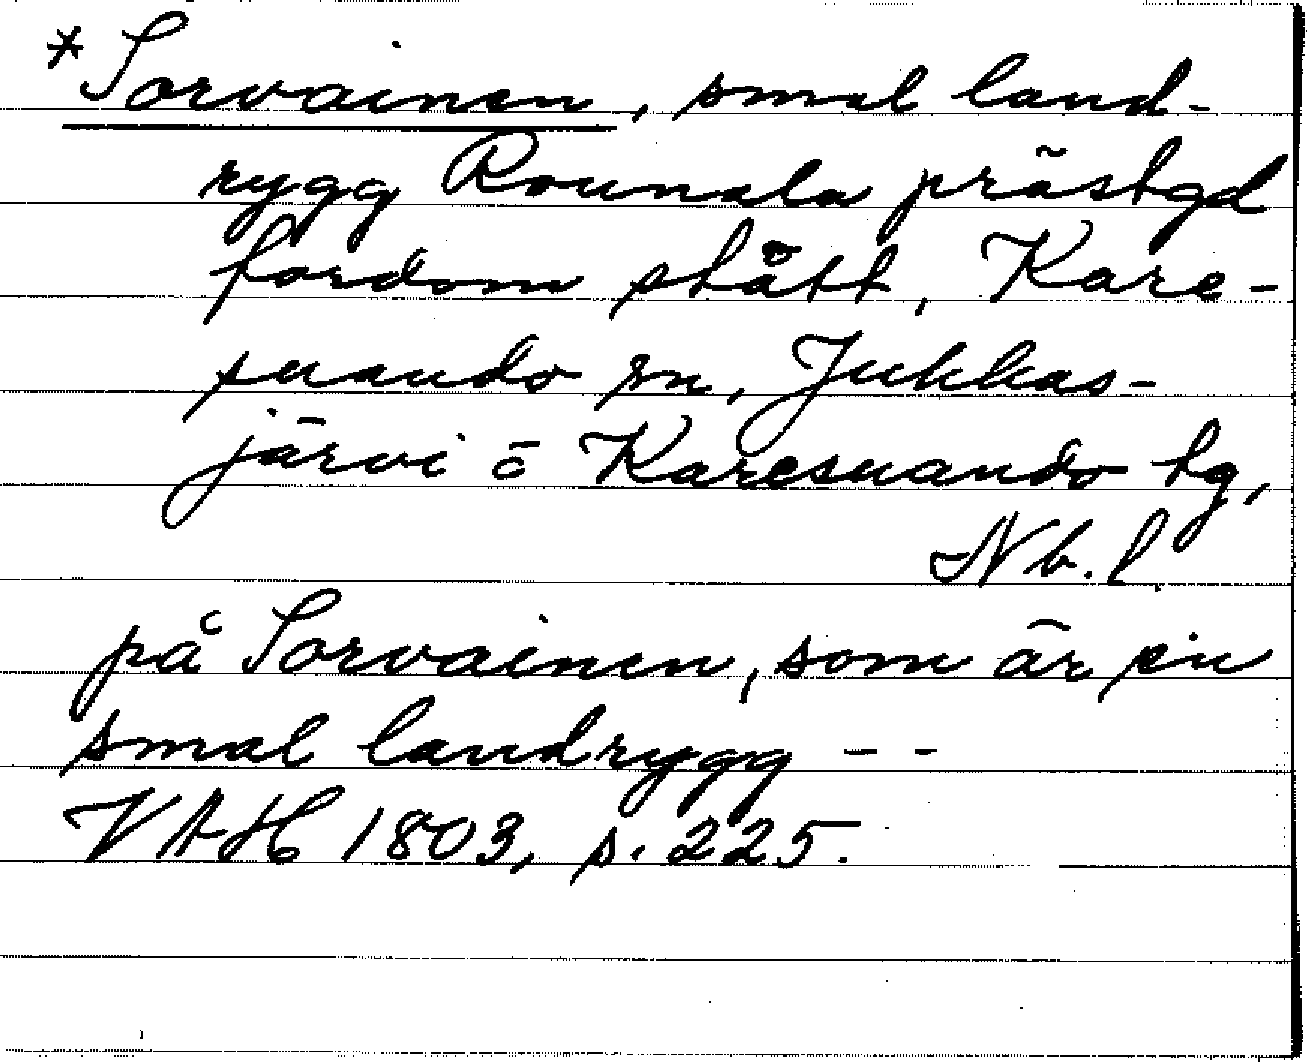 *Sorvainen, smal land-
rygg Rounala prästgd
fordom stått, Kare-
suando sn, Jukkas-
järvi o Karesuando tg,
Nb. l.
på Sorvainen, som är en
smal landrygg - -
VAH 1803, s. 225.